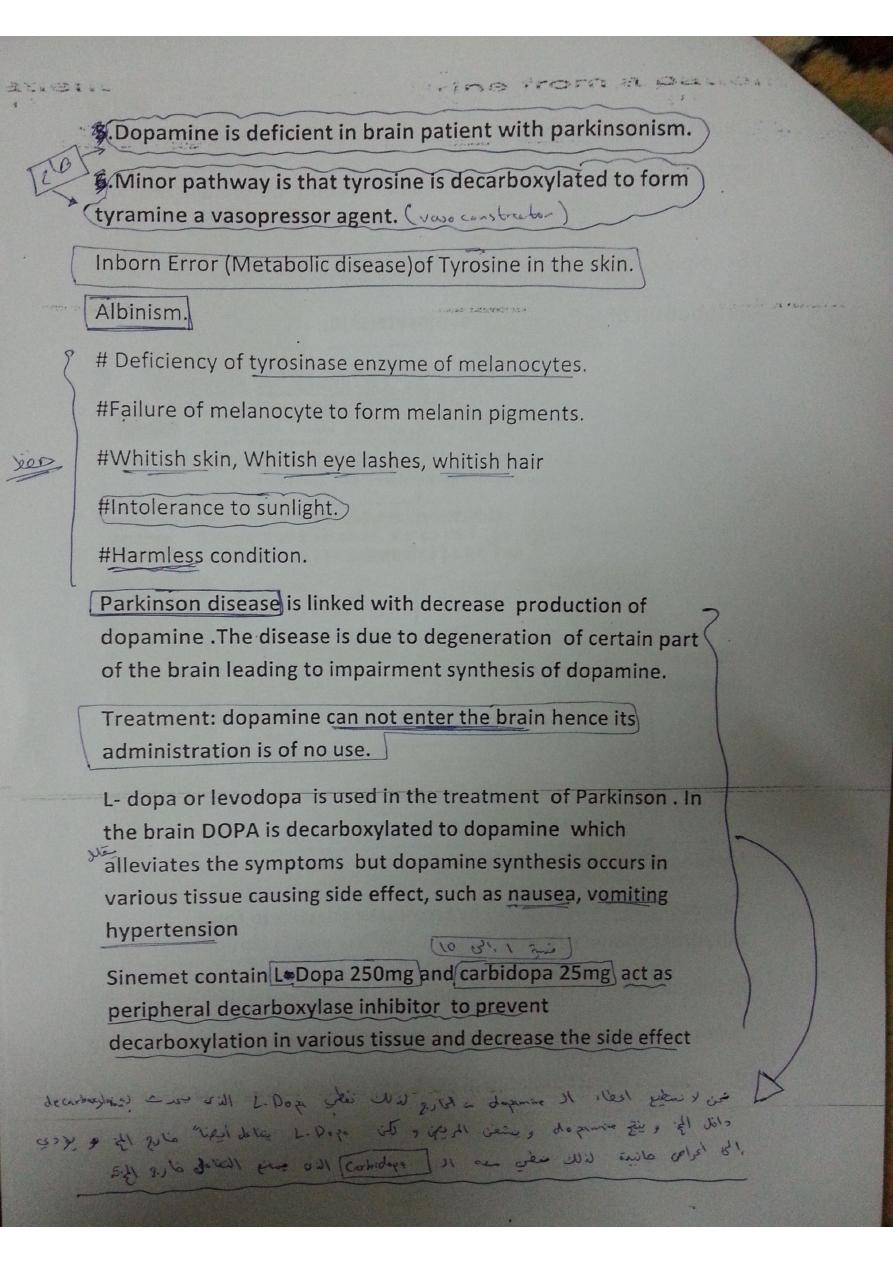 5.Dopamine is deficient in brain patient with parkinsonism.
6.Minor pathway is that tyrosine is decarboxylated to form
tyramine a vasopressor agent. (vaso constrector)
Inborn Error (Metabolic disease)of Tyrosine in the skin.
Albinism.
# Deficiency of tyrosinase enzyme of melanocytes.
#Failure of melanocyte to form melanin pigments.
حفظ
#Whitish skin, Whitish eye lashes, whitish hair
#Intolerance to sunlight.
#Harmless condition.
Parkinson disease is linked with decrease production of
dopamine .The disease is due to degeneration of certain part
of the brain leading to impairment synthesis of dopamine.
Treatment: dopamine can not enter the brain hence its
administration is of no use.
L- dopa or levodopa is used in the treatment of Parkinson . In
the brain DOPA is decarboxylated to dopamine which
alleviates the symptoms but dopamine synthesis occurs in
various tissue causing side effect, such as nausea, vomiting
hypertension
نسبة ١ الى ١٥
Sinemet contain L-Dopa 250mg and carbidopa 25mg act as
peripheral decarboxylase inhibitor to prevent
decarboxylation in various tissue and decrease the side effect
نحن لا نستطيع اعطاء الـ dopamine من الخارج لذلك نعطي L.Dopa الذي يحدث له decarboxylation
داخل المخ و ينتج dopamine و يشفى المريض و لكن L.Dopa يتفاعل أيضاً خارج المخ و يؤدي
إلى اعراض جانبية لذلك نعطي معه الـ Carbidopa الذي يمنع التفاعل خارج المخ